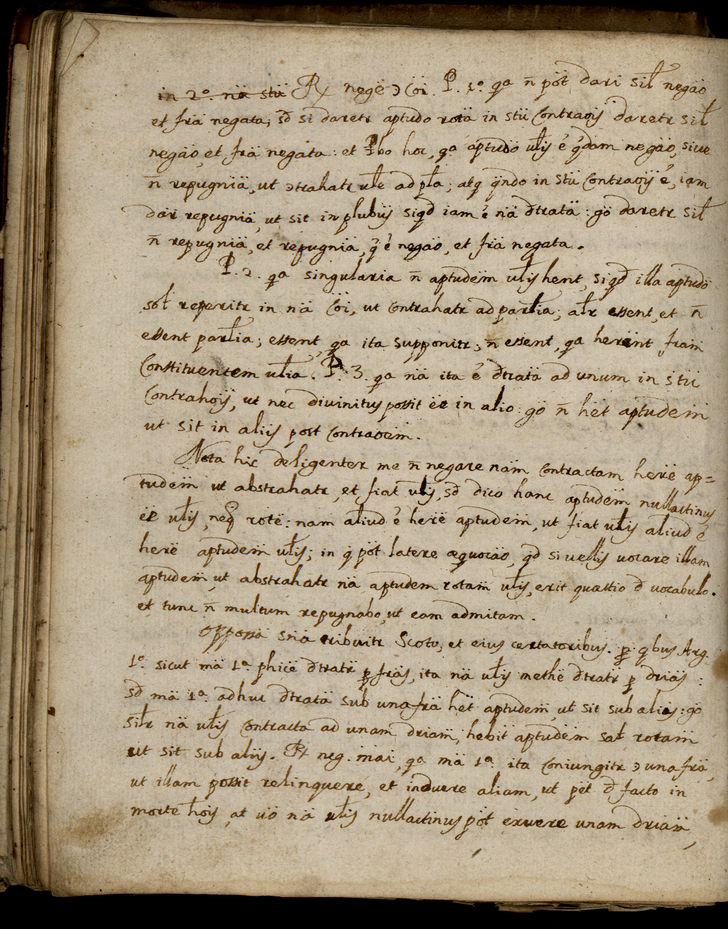 in 2º. nä stü R negē ɔ Coi. P. 1º. qa n̄ pöt dari sil negäo
et frä negata; sd si daretr aptudo rotä in stü Contraois daretr sil
negäo, et frä negata: et Pbo hoc, qa aptudo ulis ē qdam negäo, siue
n̄ repugniä, ut ɔtrahatr ule ad pla; atq qndo in stü Contraois ē, iam
dari repugniä, ut sit in plubus siqd iam ē nä dtratä: go daretr sil
n̄ repugniä, et repugniä, q ē negäo, et frä negata.
P. 2. qa singularia n̄ aptudem ulis hent, siqd illa aptudo
sol reperitr in nä Coi, ut Contrahatr ad parlia; alr essent, et n̄
essent parlia; essent, qa ita supponitr; n̄ essent, qa herent fram
Constituentem ulia. P. 3. qa nä ita ē dtratä ad unum in stü
Contrahois, ut nec diuinitus possit ēē in alio: go n̄ het aptudem
ut sit in alijs post Contraoem.
Nota hic deligenter me n̄ negare nam contractam herē ap=
tudem ut abstrahatr, et fiat ulis, sd dico hanc aptudem nullactinus
ēē ulis, neq rotē: nam aliud ē herē aptudem, ut fiat ulis aliud ē
herē aptudem ulis; in q pöt latere æquocäo, qd si uellis uocare illam
aptudem, ut abstrahatr nä aptudem rotam ulis, erit quæstio d uocabulo.
et tunc n̄ multum repugnabo, ut eam admitam.
Opposa snia tribuitr Scoto, et eius certatoribus. pr. qbus Arg.
1º. sicut mä 1ª. phicē dtratr p fräs, ita nä ulis methē dtratr p driäs:
sd mä 1ª. adhuc dtratä sub una frä het aptudem, ut sit sub alias: go
silr nä ulis contracta ad unam driam, hebit aptudem sal rotam
ut sit sub alijs. R neg. mai, qa mä 1ª. ita coniungitr ɔ una frä,
ut illam possit relinquere, et induere aliam, ut pet d facto in
morte hois, at uo nä ulis nullactinus pöt exuere unam driam,